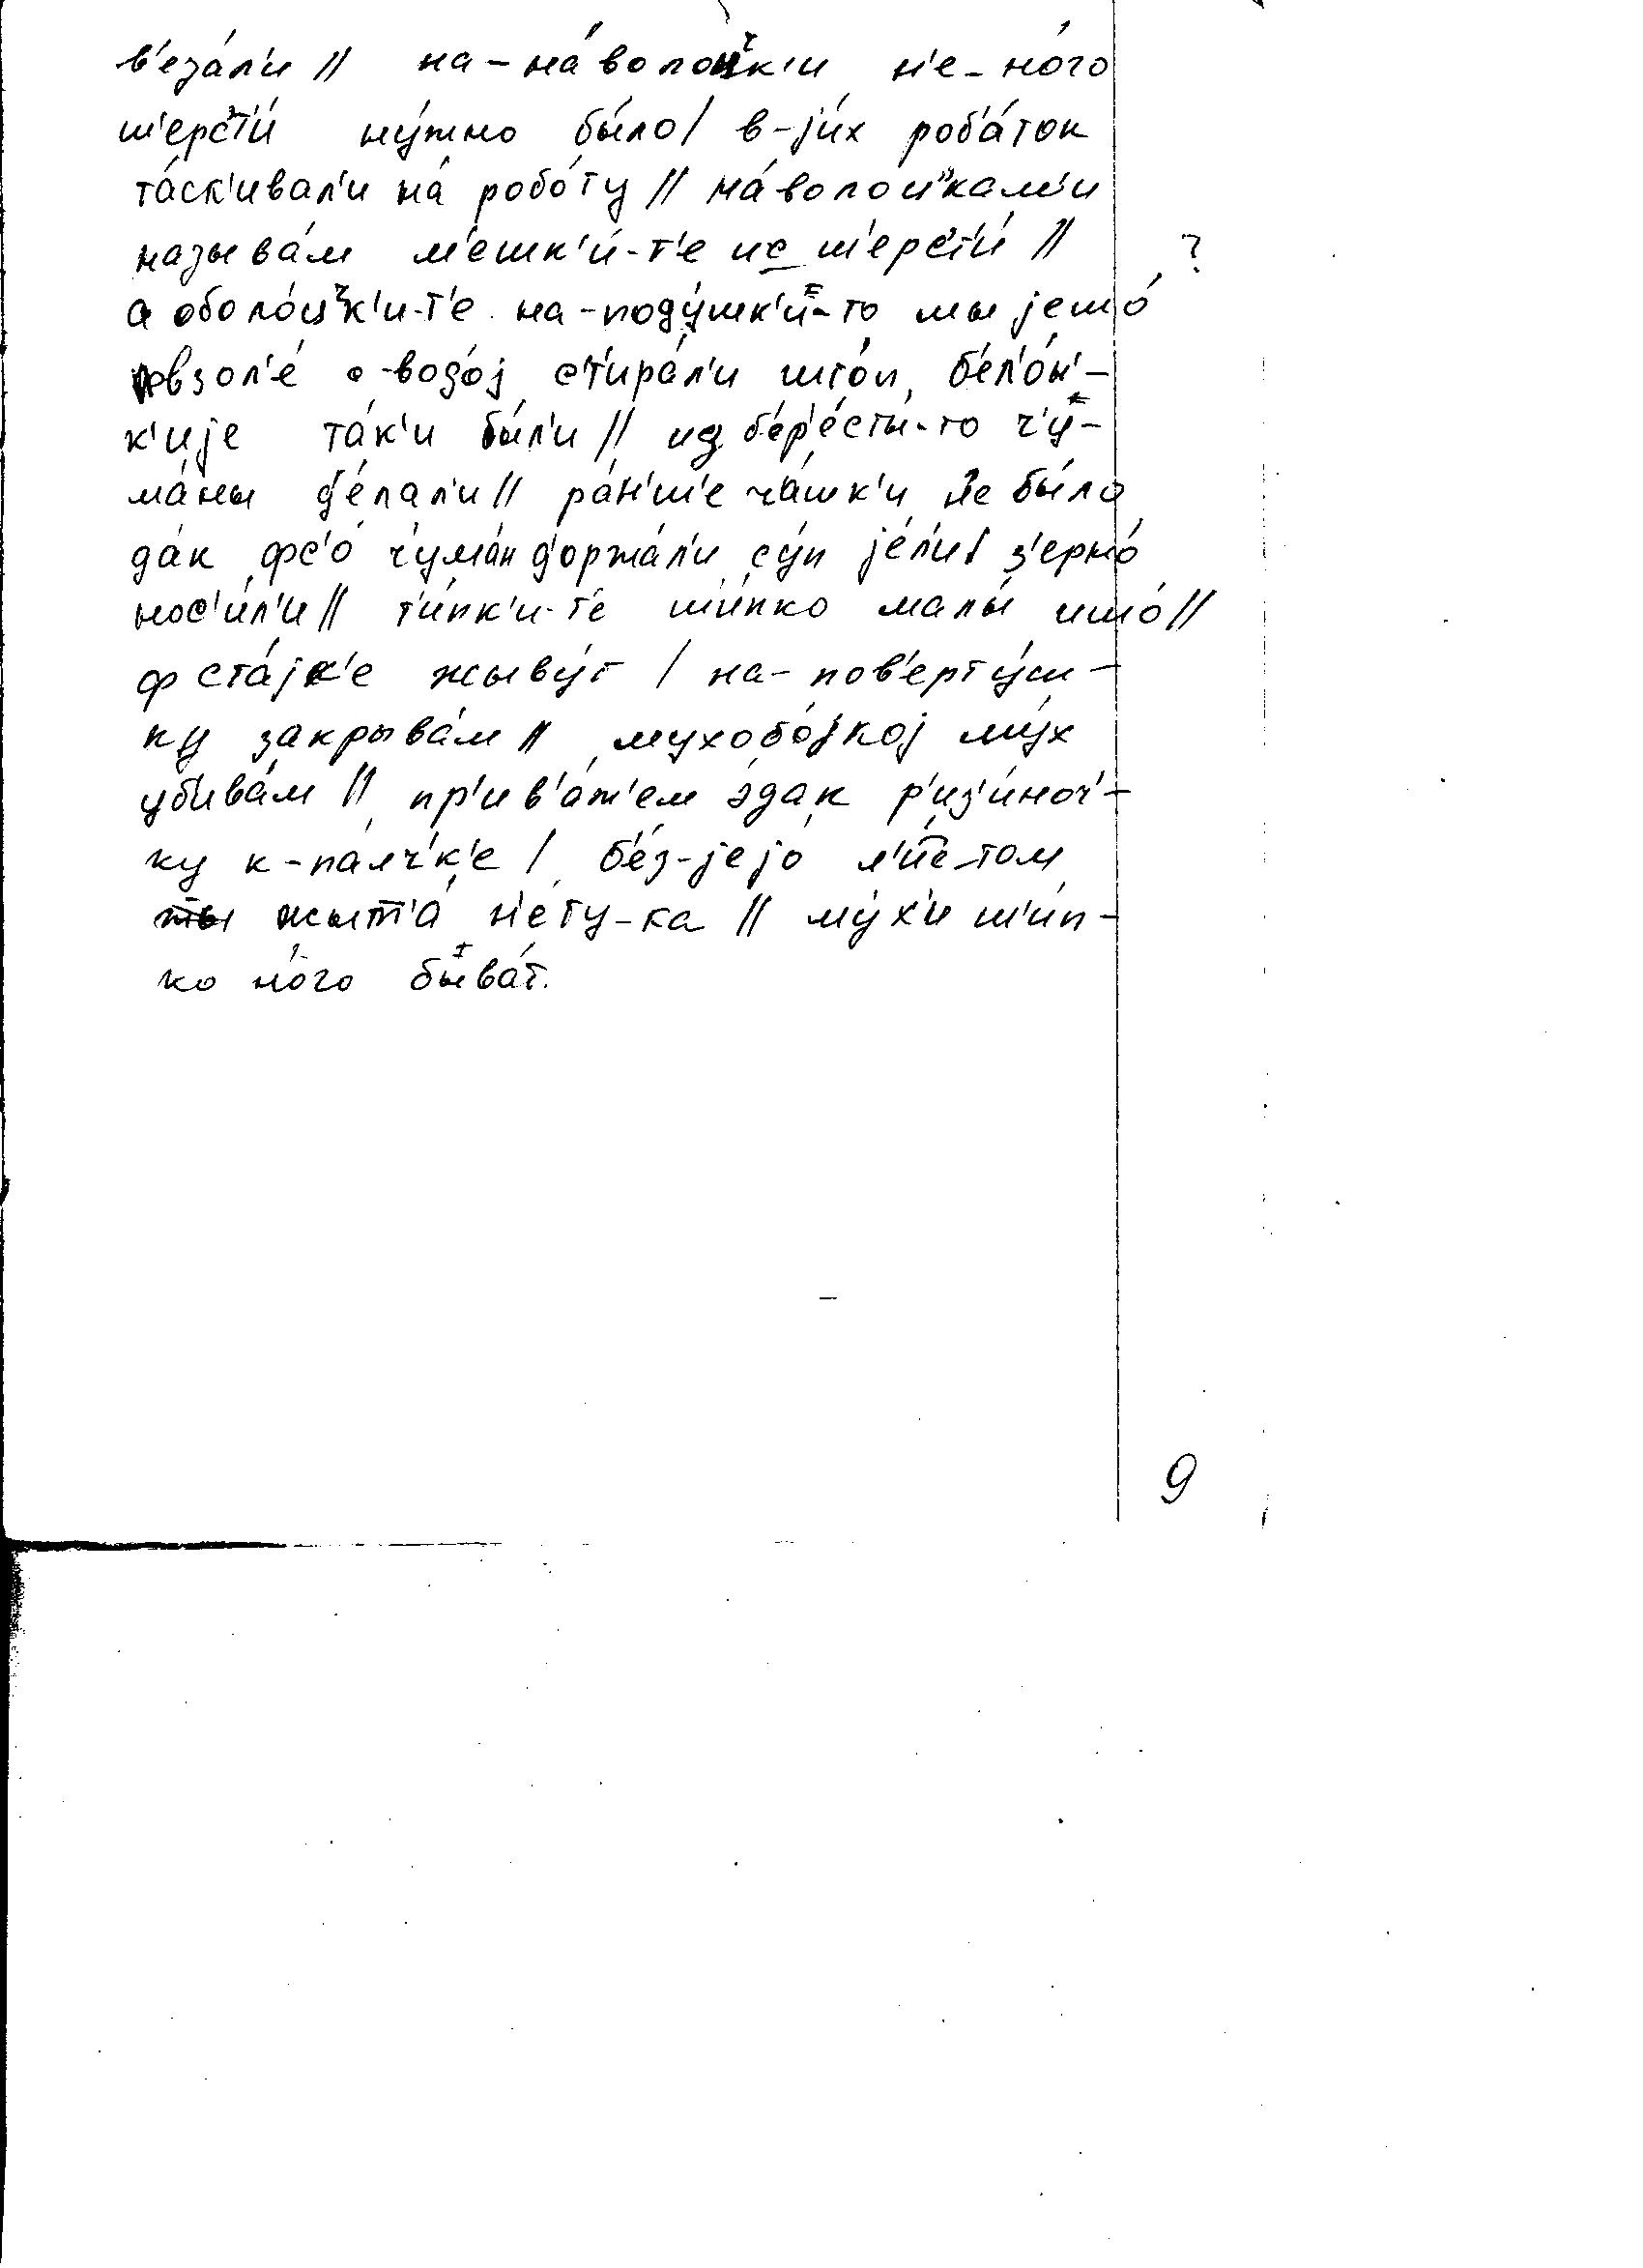 в'еза́л'и // на-на́волоц^чк'и н'е-но́го
ш'ерс'т'и́ ну́жно бы́ло / в-jи́х роб'а́ток
та́ск'ивал'и на́ робо́ту // на́волоц^чкам'и
называ́м м'ешк'и́-т'е ис ш'ерс'т'и́ // ?
а оболо́ц^чк'и-т'е на-поду́шк'и-то мы jешо́
взол'е́ с-водо́j с'т'ира́л'и што́п б'ел'о́н'-
к'иjе та́к'и бы́л'и // из б'ер'е́сты-то ч'у-
ма́ны д'е́лал'и // ра́н'ш'е ча́шк'и не бы́ло
да́к фс'о́ ч'ума́н д'оржа́л'и су́п jе́л'и / з'ерно́
нос'и́л'и // т'и́пк'и-т'е ши́пко малы́ ишо́ //
ф ста́jк'е жыву́т / на-пов'ерту́ш-
ку закрыва́м // мухобо́jкоj му́х
уб'ива́м // пр'ив'а́ж'ем э́дак р'из'и́ноч'-
ку к-па́лч'к'е / б'ез-jеjо́ л'е́том
жыт'а́ н'е́ту-ка // му́х'и ш'и́п-
ко но́го быва́т.
9